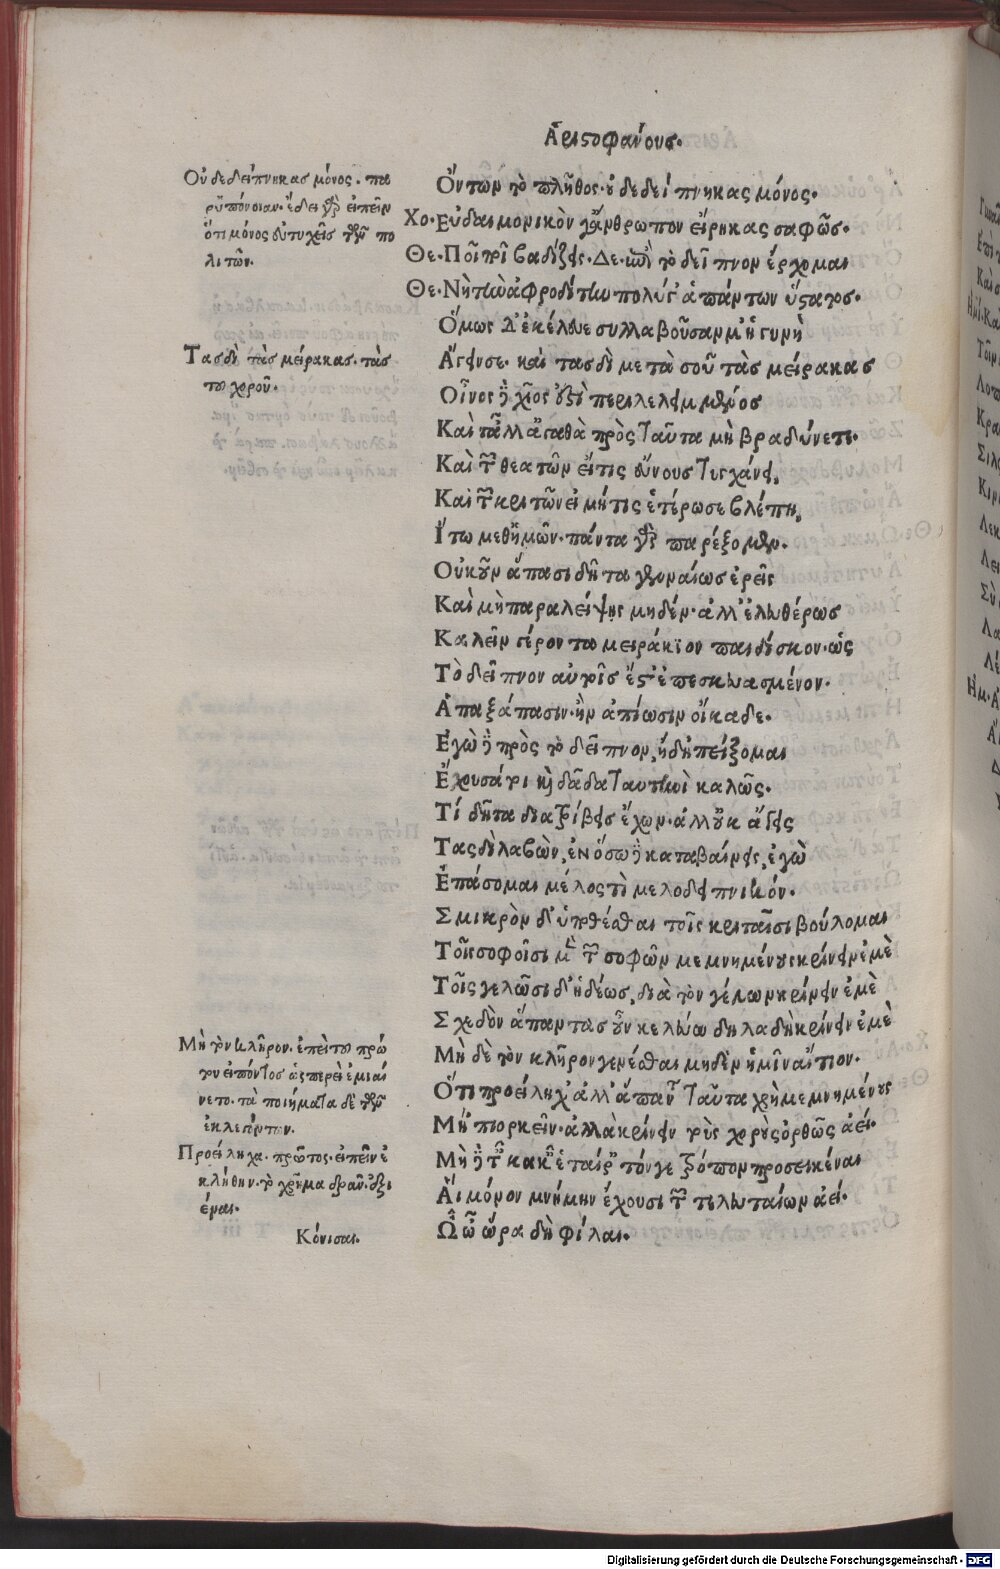 Ἀριστοφάνους.
Οὐ δεδείπνηκας μόνος. παρ
ὑπόνοιαν. ἔδει γὰρ εἰπεῖν
ὅτι μόνος εὐτυχεῖς τῶν πο
λιτῶν.
Τασδὶ τὰς μείρακας. τὰς
τοῦ χοροῦ.
Μὴ τὸν κλῆρον. ἐπεὶ τοῦ πρώ
του εἰπόντος ὡσπερεὶ ἐμιαί
νετο. τὰ ποιήματα δὲ τῶν
ἐκλεόντων.
Προείληχα. πρῶτος. εἰπεῖν ἐ
κλήθην. τὸ χρῆμα δρᾶν. ἀξι
έναι.
Κόνισαι.
Ὄντων τὸ πλῆθος. οὐ δεδείπνηκας μόνος.
Χο. Εὐδαιμονικὸν γ' ἄνθρωπον εἴρηκας σαφῶς.
Θε. Ποῖ ποῖ βαδίζεις. Δε. ἐπὶ τὸ δεῖπνον ἔρχομαι
Θε. Νὴ τὴν ἀφροδίτην πολύ γ' ἁπάντων ὕστατος.
Ὅμως δ' ἐκέλευε συλλαβοῦσαν μ' ἡ γυνὴ
Ἄγειν σε. καὶ τασδὶ μετὰ σοῦ τὰς μείρακας
Οἶνος δὲ χῖος ἐστὶ περιλελειμμένος
Καὶ τἄλλ' ἀγαθὰ πρὸς ταῦτα μὴ βραδύνετε.
Καὶ τῶν θεατῶν εἴ τις εὔνους τυγχάνει,
Καὶ τῶν κριτῶν εἰ μή τις ἑτέρωσε βλέπει,
Ἴτω μεθ' ἡμῶν. πάντα γὰρ παρέξομεν.
Οὐκοῦν ἅπασι δῆτα γενναίως ἐρεῖς
Καὶ μὴ παραλείψῃς μηδέν. ἀλλ' ἐλευθέρως
Καλεῖν γέροντα μειράκιον παιδίσκον. ὡς
Τὸ δεῖπνον αὐτοῖς ἔστ' ἐπεσκευασμένον.
Ἁπαξάπασιν. ἢν ἀπίωσιν οἴκαδε.
Ἐγὼ δὲ πρὸς τὸ δεῖπνον, ἤδη 'πείξομαι
Ἔχω γάρ τι καὶ δᾷδα ταυτηνὶ καλῶς.
Τί δῆτα διατρίβεις ἔχων. ἀλλ' οὐκ ἄγεις
Τασδὶ λαβὼν, ἐν ὅσῳ δὲ καταβαίνεις, ἐγὼ
Ἐπάσομαι μέλος τὶ μελοδειπνικόν.
Σμικρὸν δ' ὑποθέσθαι τοῖς κριταῖσι βούλομαι
Τοῖς σοφοῖσι μὲν τῶν σοφῶν μεμνημένους κρίνειν ἐμὲ
Τοῖς γελῶσι δ' ἡδέως, διὰ τὸν γέλων κρίνειν ἐμὲ
Σχεδὸν ἅπαντας οὖν κελεύω δηλαδὴ κρίνειν ἐμὲ
Μὴ δὲ τὸν κλῆρον γενέσθαι μηδὲν ἡμῖν αἴτιον.
Ὅτι προείληχ' ἀλλ' ἅπαντα ταῦτα χρὴ μεμνημένους
Μὴ 'πιορκεῖν. ἀλλὰ κρίνειν τοὺς χοροὺς ὀρθῶς ἀεί.
Μὴ δὲ ταῖς κακαῖς ἑταίραις τόν γε τρόπον προσεικέναι
Αἳ μόνον μνήμην ἔχουσι τῶν τελευταίων ἀεί.
Ὢ ὢ ὥρα δὴ φίλαι.